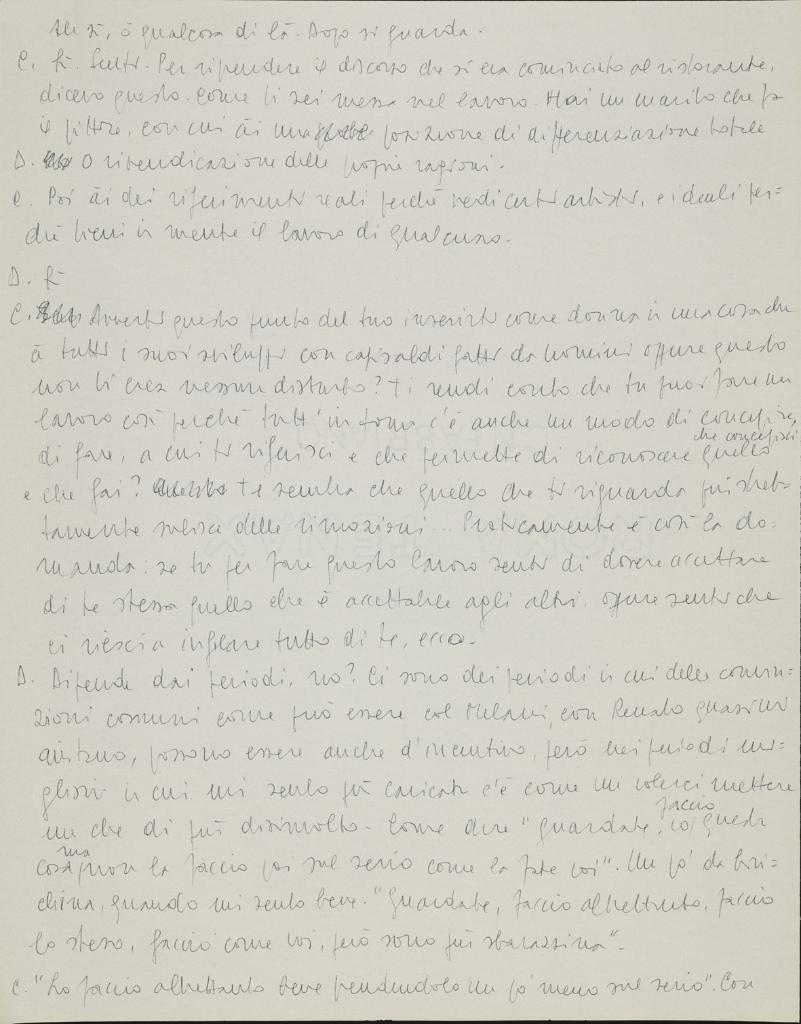 Ah sì, è qualcosa di là. Dopo si guarda.
C. Sì. Senti. Per riprendere il discorso che si era cominciato al ristorante,
dicevo questo. Come ti sei messa nel lavoro. Hai un marito che fa
il pittore, con cui ài una posizione di differenziazione totale
D. O rivendicazione delle proprie ragioni.
C. Poi ài dei riferimenti reali perché vedi certi artisti, e ideali per=
ché tieni in mente il lavoro di qualcuno.
D. Sì
C. Avverti questo punto del tuo inserirti come donna in una cosa che
à tutti i suoi sviluppi con capisaldi fatti da uomini oppure questo
non ti crea nessun disturbo? Ti rendi conto che tu puoi fare un
lavoro così perché tutt'intorno c'è anche un modo di concepire,
di fare, a cui ti riferisci e che permette di riconoscere quello che concepisci
e che fai? Ti sembra che quello che ti riguarda più stret=
tamente subisca delle rimozioni... Praticamente è così la do=
manda: se tu per fare questo lavoro senti di dovere accettare
di te stessa quello che è accettabile agli altri, oppure senti che
ci riesci a infilare tutto di te, ecco.
D. Dipende dai periodi, no? Ci sono dei periodi in cui delle convin=
zioni comuni come può essere col Melani, con Renato quasi mi
aiutano, possono essere anche d'incentivo, però nei periodi mi=
gliori in cui mi sento più caricata c'è come un volerci mettere
un che di più disinvolto. Come dire "guardate, io faccio queste
cose ma non la faccio poi sul serio come la fate voi". Un po' da biri=
china, quando mi sento bene. "Guardate, faccio altrettanto, faccio
lo stesso, faccio come voi, però sono più sbarazzina".
C. "Lo faccio altrettanto bene prendendolo un po' meno sul serio". Con